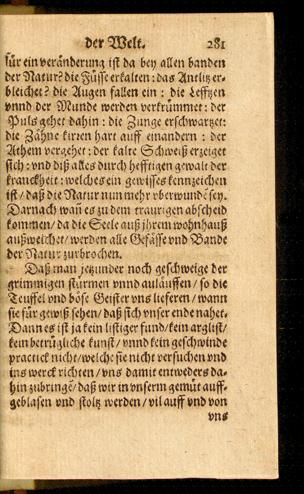 der Welt. 281
für ein veränderung ist da bey allen banden
der Natur? die Füsse erkalten: das Antlitz er-
bleichet? die Augen fallen ein: die Lefftzen
vnnd der Munde werden verkrümmet: der
Puls gehet dahin: die Zunge erschwartzet:
die Zähne kirren hart auff einandern: der
Athem vergehet: der kalte Schweiß erzeiget
sich: vnd diß alles durch hefftigen gewalt der
kranckheit: welches ein gewisses kennzeichen
ist/ daß die Natur nun mehr vberwundē sey.
Darnach wañ es zu dem traurigen abscheid
kommen/ da die Seele auß jhrem wohnhauß
außweichet/ werden alle Gefässe vnd Bande
der Natur zurbrochen.
Daß man jetzunder noch geschweige der
grimmigen stürmen vnnd anläuffen/ so die
Teuffel vnd böse Geister vns lieferen/ wann
sie für gewiß sehen/ daß sich vnser ende nahet.
Dann es ist ja kein listiger fund/ kein arglist/
kein betrügliche kunst/ vnnd kein geschwinde
practick nicht/ welche sie nicht versuchen vnd
ins werck richten/ vns damit entweders da-
hin zubringē/ daß wir in vnserm gemüt auff-
geblasen vnd stoltz werden/ vil auff vnd von
vns